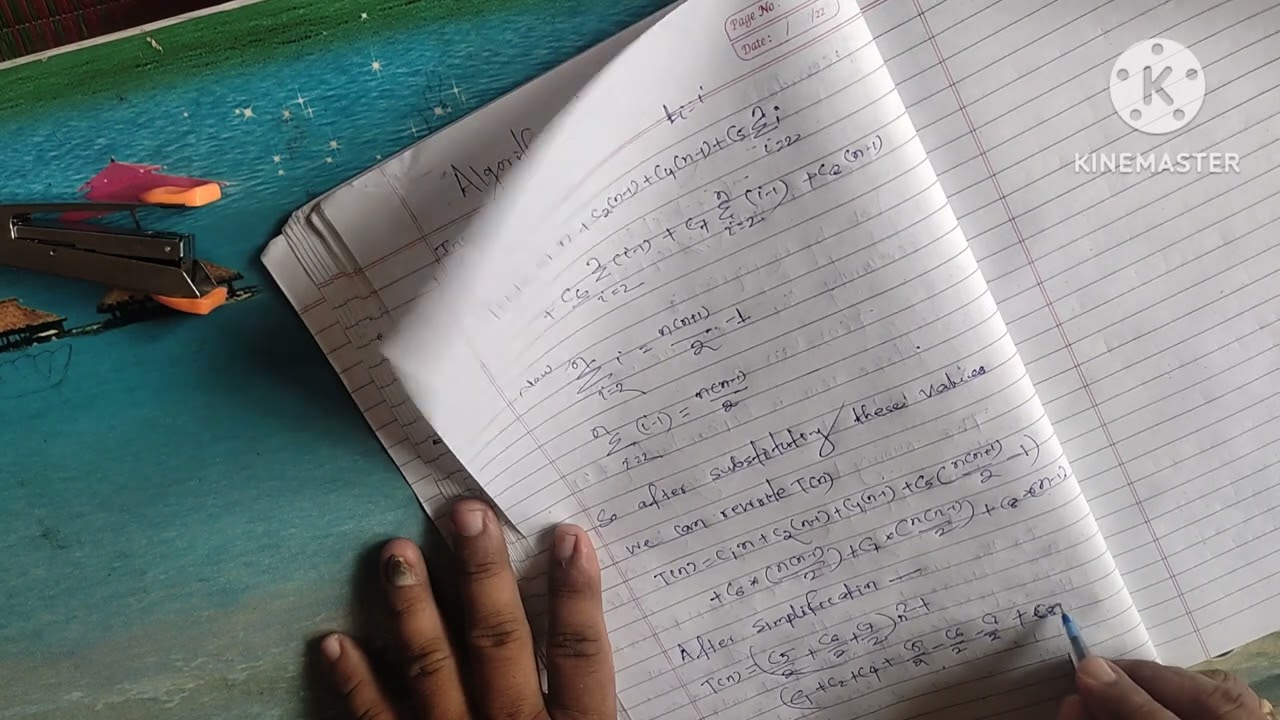 Page No.
Date: / /22
Algorit
ti=i
n + C2(n-1) + C4(n-1) + C5 Σ(i=2 to n) i
+ C6 Σ(i=2 to n) (i-1) + C7 Σ(i=2 to n) (i-1) + C8(n-1)
Now Σ(i=2 to n) i = n(n+1)/2 - 1
Σ(i=2 to n) (i-1) = n(n-1)/2
So after substituting these values
we can rewrite T(n)
T(n) = C1n + C2(n-1) + C4(n-1) + C5(n(n+1)/2 - 1)
+ C6*(n(n-1)/2) + C7*(n(n-1)/2) + C8*(n-1)
After simplification —
T(n) = (C5/2 + C6/2 + C7/2)n² +
(C1 + C2 + C4 + C5/2 - C6/2 - C7/2 + C8
K
KINEMASTER